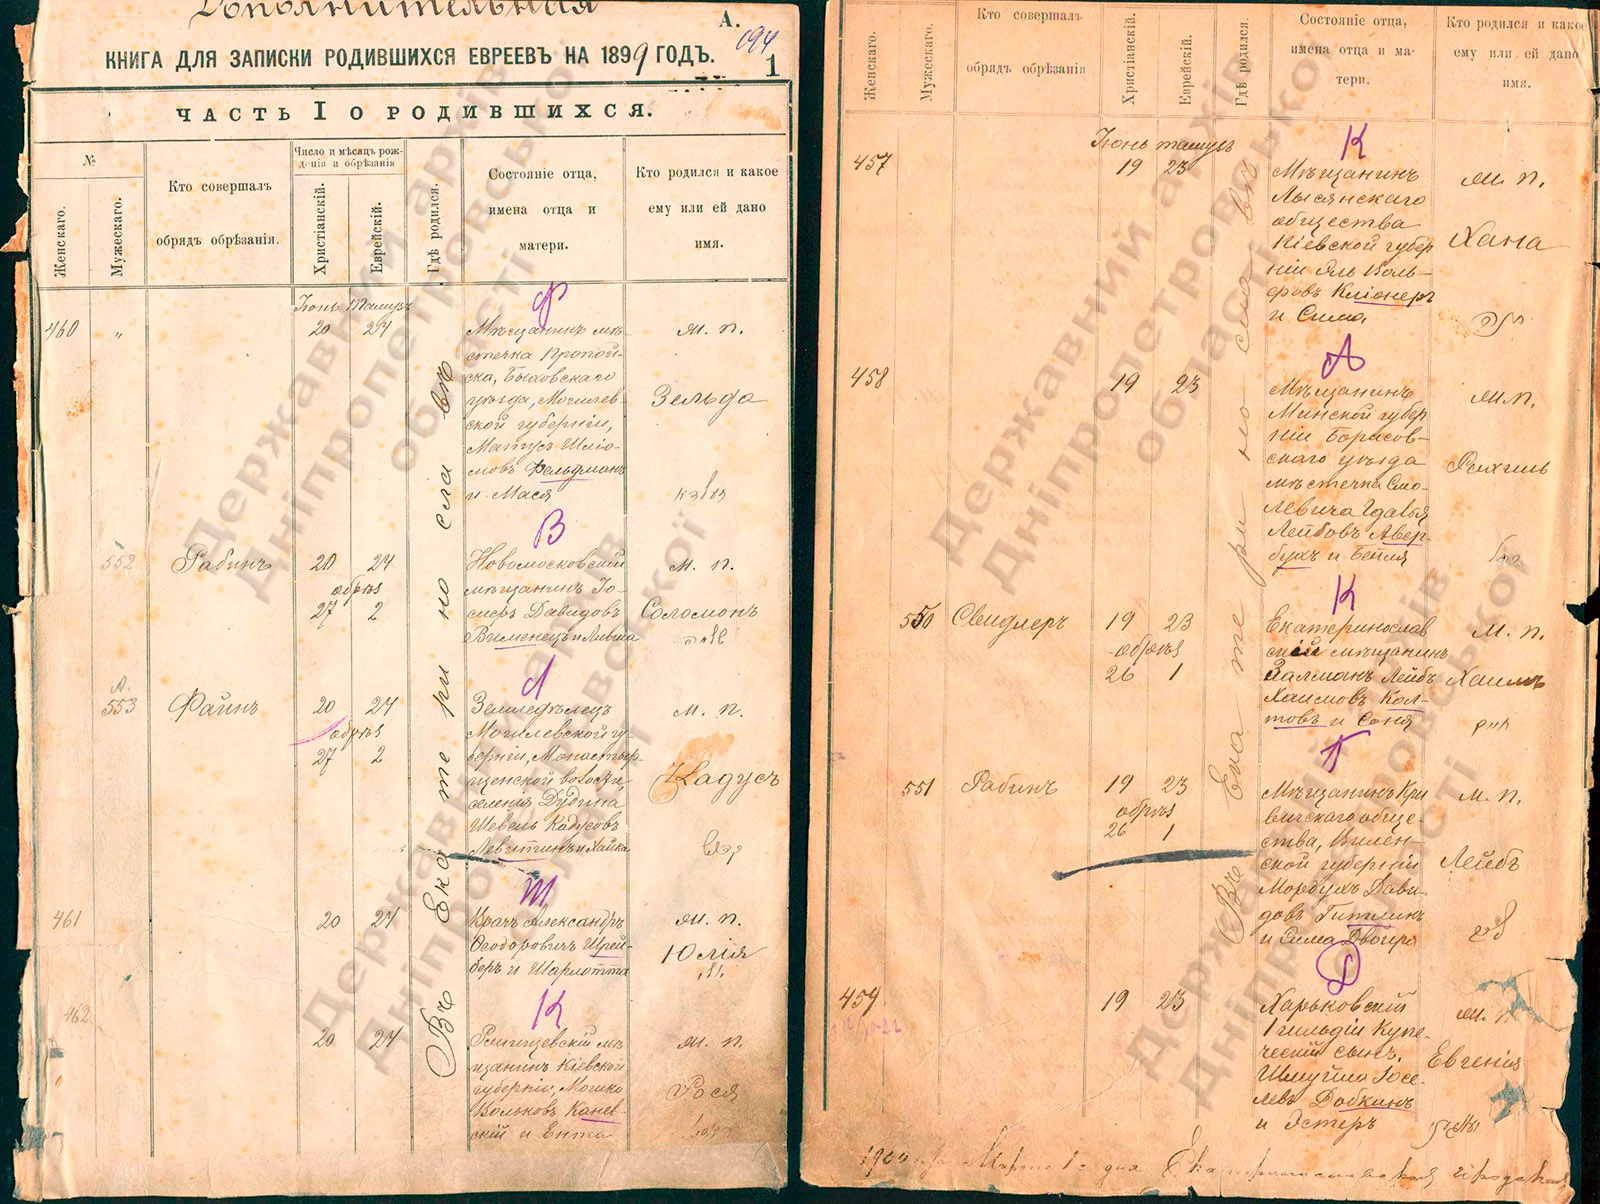 Дополнительная
А.
194
КНИГА ДЛЯ ЗАПИСКИ РОДИВШИХСЯ ЕВРЕЕВЪ НА 1899 ГОДЪ.
1
ЧАСТЬ I О РОДИВШИХСЯ.
№
Женскаго.
Мужескаго.
Кто совершалъ
обрядъ обрѣзанія.
Число и мѣсяцъ рож-
денія и обрѣзанія
Христіанскій.
Еврейскій.
Гдѣ родился.
Состояніе отца,
имена отца и
матери.
Кто родился и какое
ему или ей дано
имя.
Въ Екатеринославѣ
Іюнь Тамузъ
460
"
20 24
Ф
Мѣщанинъ мѣ-
стечка Пропой-
ска, Быховскаго
уѣзда, Могилев
ской губерніи,
Матусъ Шлio-
мовъ Фельдманъ
и Мася
м. п.
Зельда
552
Рабинъ
20 24
обрѣз
27 2
В
Новомосковскій
мѣщанинъ Іо-
сифъ Давидовъ
Вименецъ и Ливша
м. п.
Соломонъ
А.
553
Файнъ
20 24
обрѣз
27 2
Л
Земледѣлецъ
Могилевской гу-
берніи, Монастыр-
щенской волости,
селенія Дудина
Шевель Кадусовъ
Левитинъ и Хайка
м. п.
Кадусъ
461
20 24
Ш
Врачъ Александръ
Ѳеодоровичъ Шрей-
беръ и Шарлотта
м. п.
Юлія
462
20 24
К
мѣ
щанинъ Кіевской
губерніи, Мошко
Вольковъ Канев-
скій и Ента
м. п.
Рося
Женскаго.
Мужескаго.
Кто совершалъ
обрядъ обрѣзанія
Христіанскій.
Еврейскій.
Гдѣ родился.
Состояніе отца,
имена отца и ма-
тери.
Кто родился и какое
ему или ей дано
имя.
Въ Екатеринославѣ
Іюнь тамузъ
457
19 23
К
Мѣщанинъ
Лысянскаго
общества
Кіевской губер
ніи Эль Воль-
фовъ Кліонеръ
и Сима
м. п.
Хана
458
19 23
А
Мѣщанинъ
Минской губер
ніи Борисов-
скаго уѣзда
мѣстечка Смо-
левича Гдалья
Лейбовъ Авер-
бухъ и Бейля
м. п.
Рахиль
550
Свидлеръ
19 23
обрѣз
26 1
К
Екатеринослав
скій мѣщанинъ
Залманъ Лейбъ
Хаимовъ Кол-
товъ и Соня
м. п.
Хаимъ
551
Рабинъ
19 23
обрѣз
26 1
Г
Мѣщанинъ Кри
вичскаго обще-
ства, Вилен-
ской губерніи
Мордухъ Дави-
довъ Гитлинъ
и Сима Двойра
м. п.
Лейбъ
459
19 23
Д
Харьковскій
1 гильдіи Купе-
ческій сынъ,
Шмуйла Іосе-
левъ Добкинъ
и Эстеръ
м. п.
Евгенія
1900 года Марта 1 дня Екатеринославская городская
Державний архів
Дніпропетровської
області